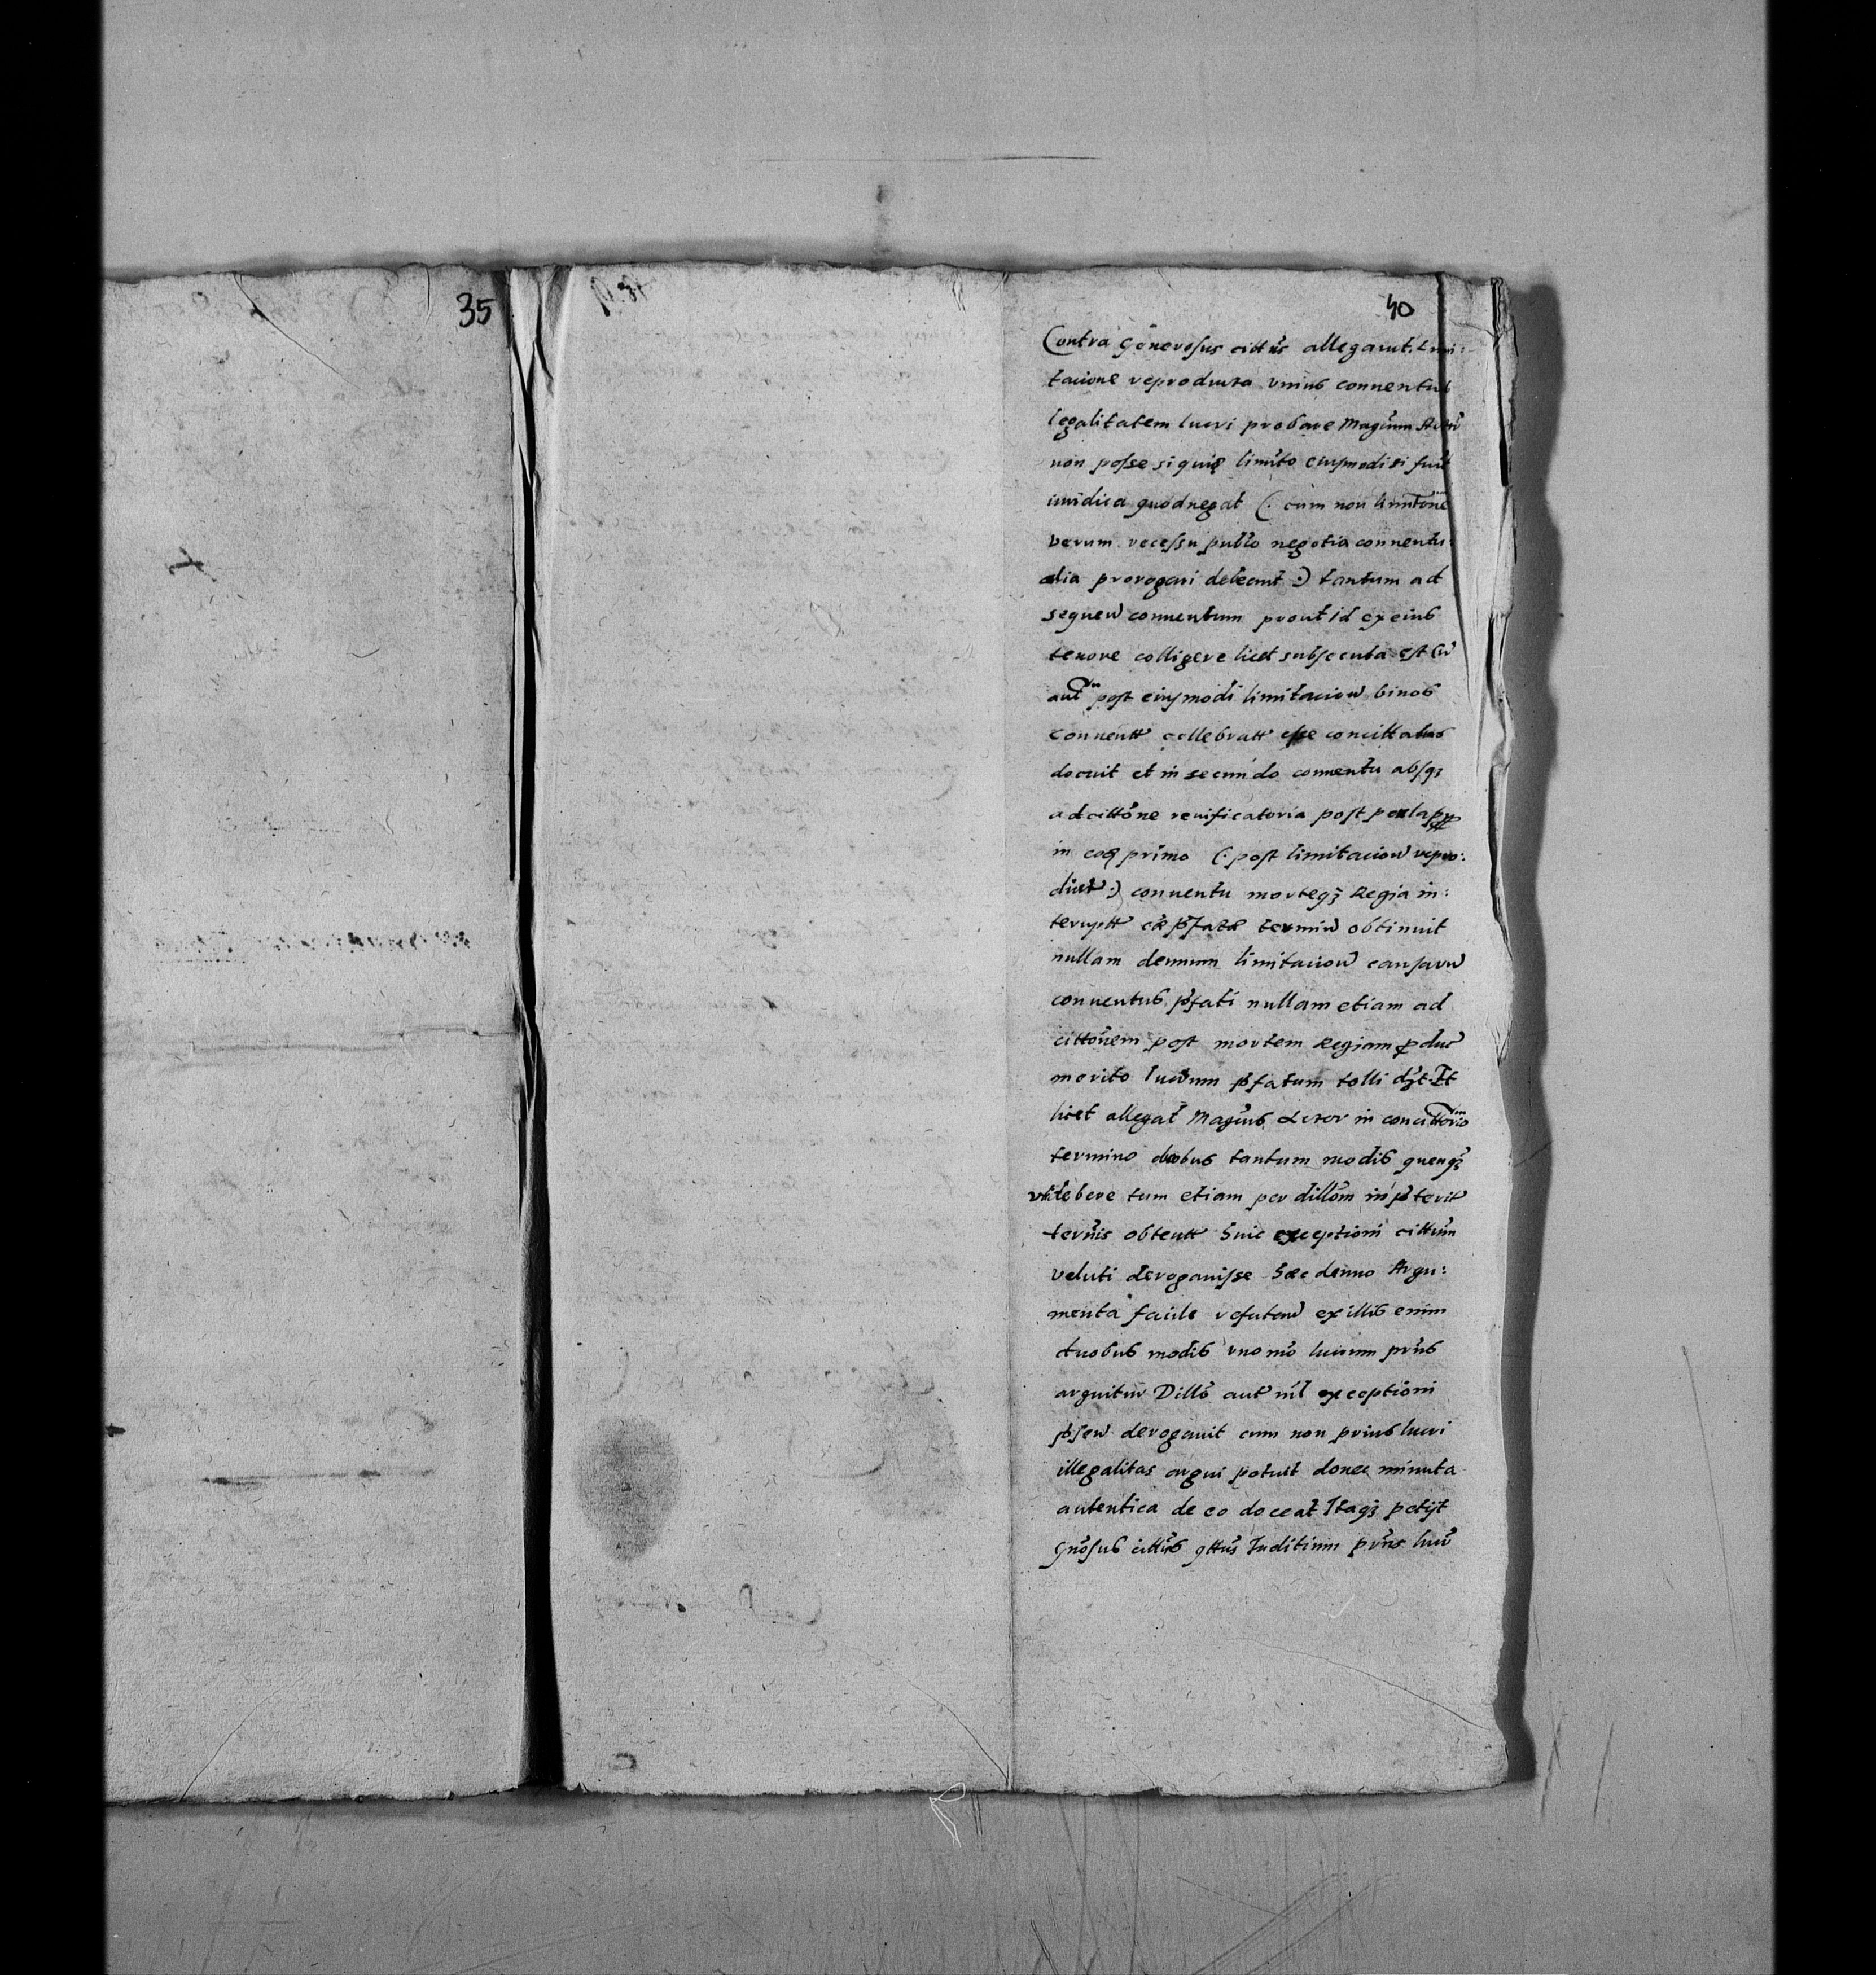 35
40
Contra Generosus cittus allegavit Limi:
tacione reproducta unius connentus
legalitatem lucri probare Magcum Actorem
non posse si quis limito eiusmodi si fuit
iuridica quod negat (: cum non limitone
verum recessu publo negotia connentu:
alia prorogari debeant :) tantum ad
sequen connentum prout id ex eius
tenore colligere licet subsecuta est
aut post eiusmodi limitacion binos
connentt cellebratt esse concittatus
docuit et in secundo connentu absq3
adcittone reuificatoria post
in eoq primo (: post limitacion repro:
duct :) connentu morteq3 Regia in:
terruptt termin obtinuit
nullam demum limitacion causarum
connentus pfati nullam etiam ad
cittonem post mortem Regiam pduc
merito lucrum pfatum tolli dzt. Et
licet allegat Magcus Actor in concittorio
termino duobus tantum modis quenq3
debere tum etiam per dillom in pterit
termis obtentt huic exceptioni cittum
veluti derogauisse haec denuo Argu:
menta facile refutan ex illis enim
duobus modis uno mo lucrum pris
arguitur Dillo aut nil exceptioni
psen derogauit cum non prius lucri
illegalitas argui potuit donec minuta
autentica de eo doceat Itaq3 petijt
Gnosus cittus Iuditium pns lucr